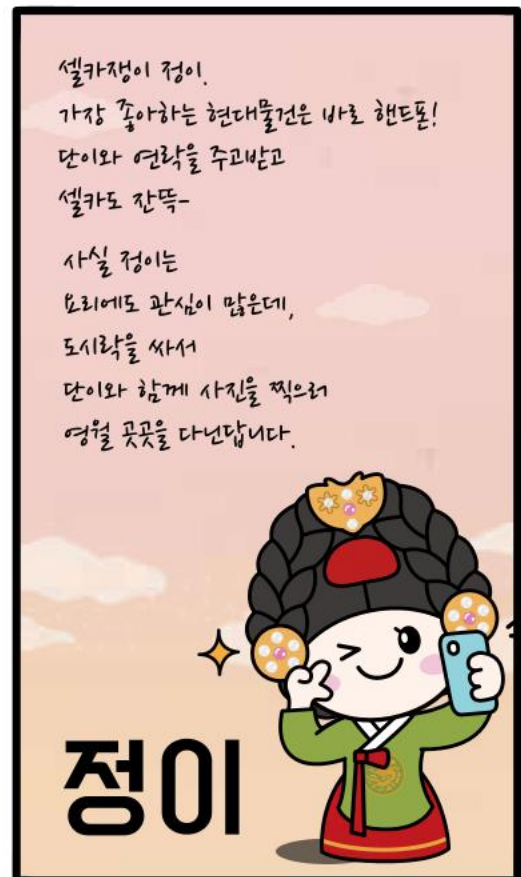 셀카쟁이 정이.
가장 좋아하는 현대물건은 바로 핸드폰!
단이와 연락을 주고받고
셀카도 잔뜩-
사실 정이는
요리에도 관심이 많은데,
도시락을 싸서
단이와 함께 사진을 찍으러
영월 곳곳을 다닌답니다.
정이